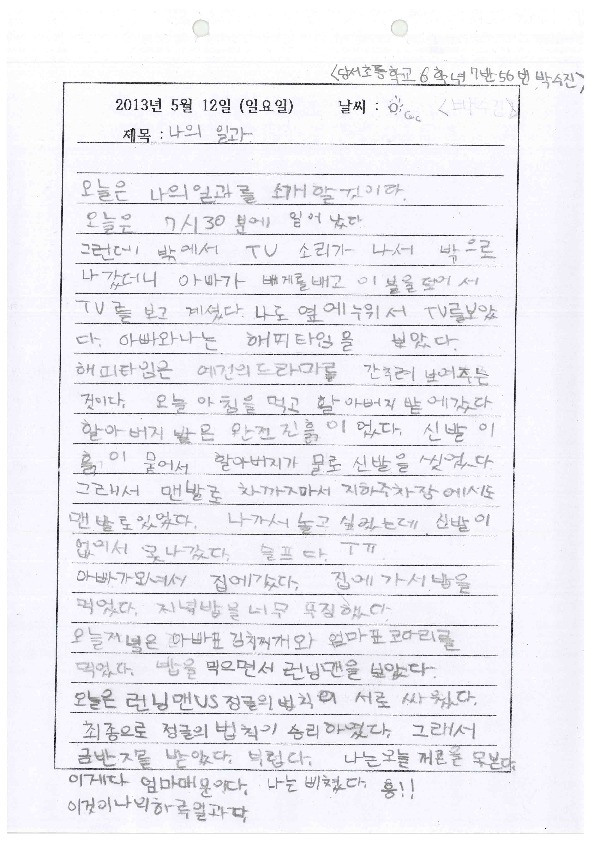 <당서초등학교 6학년 7반 56번 박수진>
2013년 5월 12일 (일요일) 날씨 : <박수진>
제목 : 나의 일과
오늘은 나의일과를 소개할것이다.
오늘은 7시30분에 일어났다
그런데 밖에서 TV 소리가 나서 밖으로
나갔더니 아빠가 배게를배고 이불을덮어서
TV를 보고 계셨다. 나도 옆에누워서 TV를보았
다. 아빠와나는 해피타임을 보았다.
해피타임은 예전의드라마를 간추려 보여주는
것이다. 오늘 아침을 먹고 할아버지 밭에갔다
할아버지 밭은 완전진흙이었다. 신발이
흙이 뭍어서 할아버지가 물로 신발을 씻었다.
그래서 맨발로 차까지와서 지하주차장에서도
맨발로있었다. 나가서 놀고 싶었는데 신발이
없어서 못나갔다. 슬프다. ㅜㅠ
아빠가와서 집에갔다. 집에가서밥을
먹었다. 저녁밥을 너무 푸짐했다
오늘저녁은 아빠표 김치찌개와 엄마표코다리를
먹었다. 밥을 먹으면서 런닝맨을 보았다.
오늘은 런닝맨VS정글의법칙이 서로 싸웠다.
최종으로 정글의법칙이 승리하였다. 그래서
금반지를 받았다. 부럽다. 나는오늘 개콘을 못본다.
이게다 엄마때문이다. 나는 삐졌다. 흥!!
이것이나의하루일과다